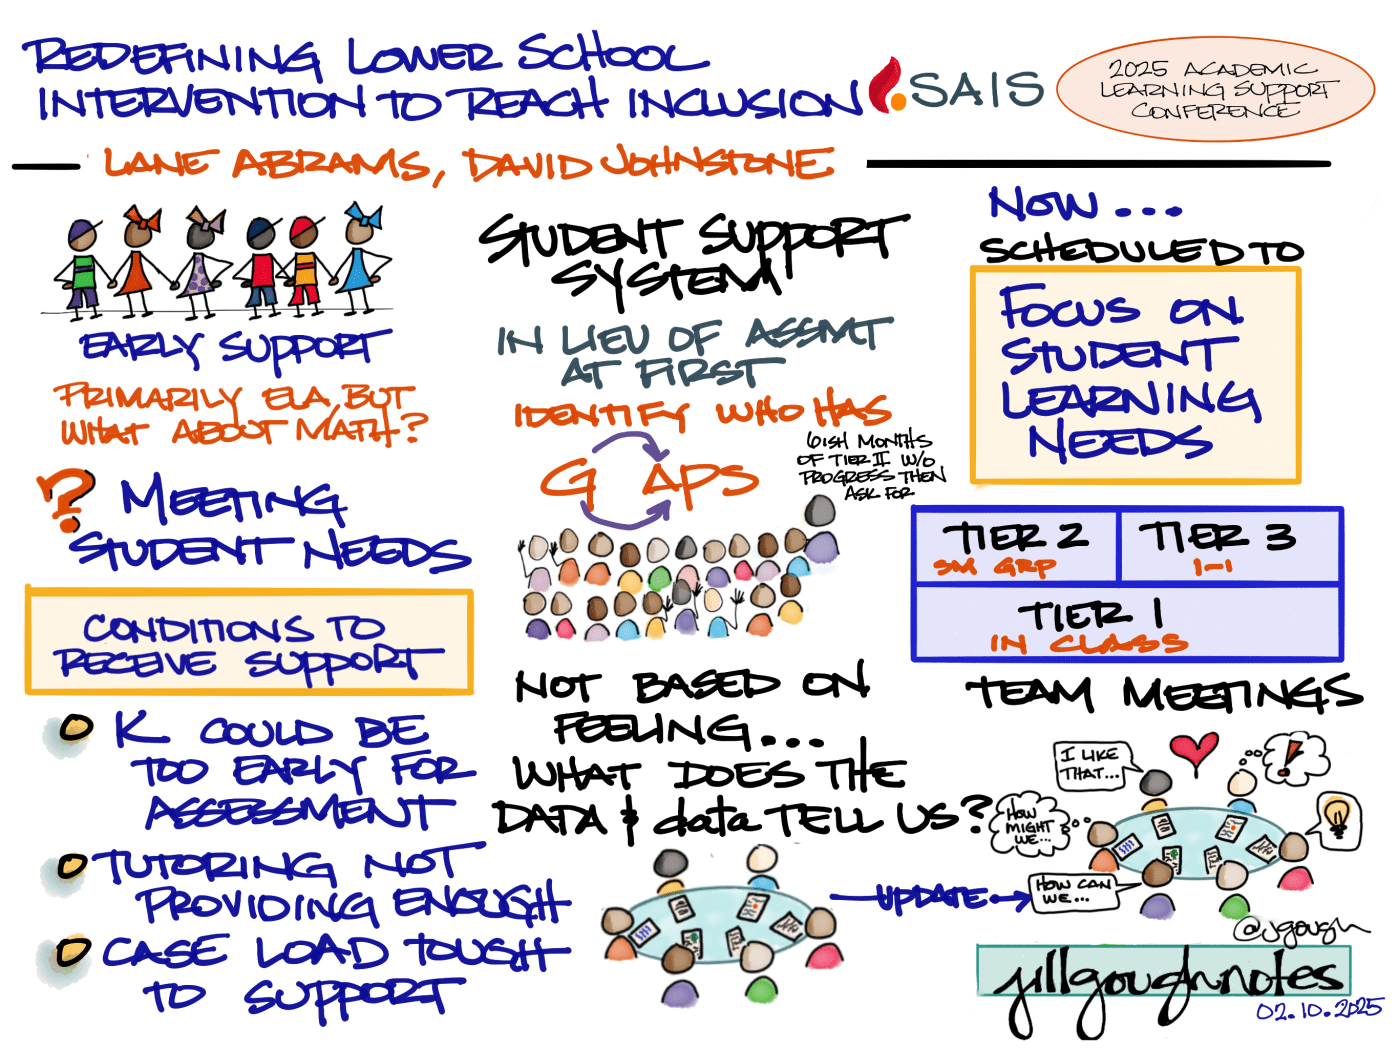 REDEFINING LOWER SCHOOL
INTERVENTION TO REACH INCLUSION
SAIS
2025 ACADEMIC
LEARNING SUPPORT
CONFERENCE
LANE ABRAMS, DAVID JOHNSTONE
EARLY SUPPORT
PRIMARILY ELA, BUT
WHAT ABOUT MATH?
? MEETING
STUDENT NEEDS
CONDITIONS TO
RECEIVE SUPPORT
K COULD BE
TOO EARLY FOR
ASSESSMENT
TUTORING NOT
PROVIDING ENOUGH
CASE LOAD TOUGH
TO SUPPORT
STUDENT SUPPORT
SYSTEM
IN LIEU OF ASSMT
AT FIRST
IDENTIFY WHO HAS
GAPS
6ISH MONTHS
OF TIER II W/O
PROGRESS THEN
ASK FOR
NOT BASED ON
FEELING...
WHAT DOES THE
DATA & data TELL US?
UPDATE
NOW...
SCHEDULED TO
FOCUS ON
STUDENT
LEARNING
NEEDS
TIER 2
SM GRP
TIER 3
1-1
TIER 1
IN CLASS
TEAM MEETINGS
I LIKE
THAT...
!
HOW
MIGHT
WE...
HOW CAN
WE...
@jgough
jillgough.notes
02.10.2025